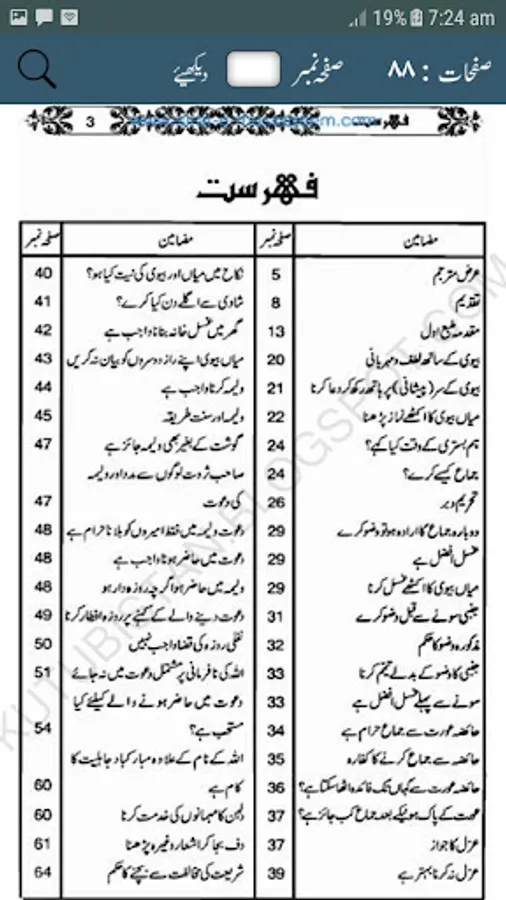 19% 7:24 am
صفحات : ۸۸ صفحہ نمبر دیکھیئے
فہرست 3
فہرست
مضامین صفحہ نمبر
عرض مترجم 5
تقدیم 8
مقدمہ طبع اول 13
بیوی کے ساتھ لطف و مہربانی 20
بیوی کے سر (پیشانی) پر ہاتھ رکھ کر دعا کرنا 21
میاں بیوی کا اکٹھے نماز پڑھنا 22
ہم بستری کے وقت کیا کہے؟ 24
جماع کیسے کرے؟ 24
تحریم دبر 26
دوبارہ جماع کا ارادہ ہو تو وضو کرے 29
غسل افضل ہے
میاں بیوی کا اکٹھے غسل کرنا 29
جنبی سونے سے قبل وضو کرے 31
مذکورہ وضو کا حکم 32
جنبی کا وضو کے بدلے تیمم کرنا 33
سونے سے پہلے غسل افضل ہے 33
حائضہ عورت سے جماع حرام ہے 34
حائضہ سے جماع کرنے کا کفارہ 35
حائضہ عورت سے کہاں تک فائدہ اٹھا سکتا ہے؟ 36
عورت کے پاک ہونیکے بعد جماع کب جائز ہے؟ 37
عزل کا جواز 37
عزل نہ کرنا بہتر ہے 39
مضامین صفحہ نمبر
نکاح میں میاں اور بیوی کی نیت کیا ہو؟ 40
شادی سے اگلے دن کیا کرے؟ 41
گھر میں غسل خانہ بنانا واجب ہے 42
میاں بیوی اپنے راز دوسروں کو بیان نہ کریں 43
ولیمہ کرنا واجب ہے 44
ولیمہ اور سنت طریقہ 45
گوشت کے بغیر بھی ولیمہ جائز ہے 47
صاحب ثروت لوگوں سے مدد اور ولیمہ
کی دعوت 47
دعوت ولیمہ میں فقط امیروں کو بلانا حرام ہے 48
دعوت میں حاضر ہونا واجب ہے 48
ولیمہ میں حاضر ہو اگرچہ روزہ دار ہو 48
دعوت دینے والے کے کہنے پر روزہ افطار کرنا 49
نفلی روزہ کی قضا واجب نہیں 50
اللہ کی نافرمانی پر مشتمل دعوت میں نہ جائے 51
دعوت میں حاضر ہونے والے کیلئے کیا
مستحب ہے؟ 54
اللہ کے نام کے علاوہ مبارکباد جاہلیت کا
کام ہے 60
دلہن کا مہمانوں کی خدمت کرنا 60
دف بجا کر اشعار وغیرہ پڑھنا 61
شریعت کی مخالفت سے بچنے کا حکم 64
KUTUBISTAN.BLOGSPOT.COM